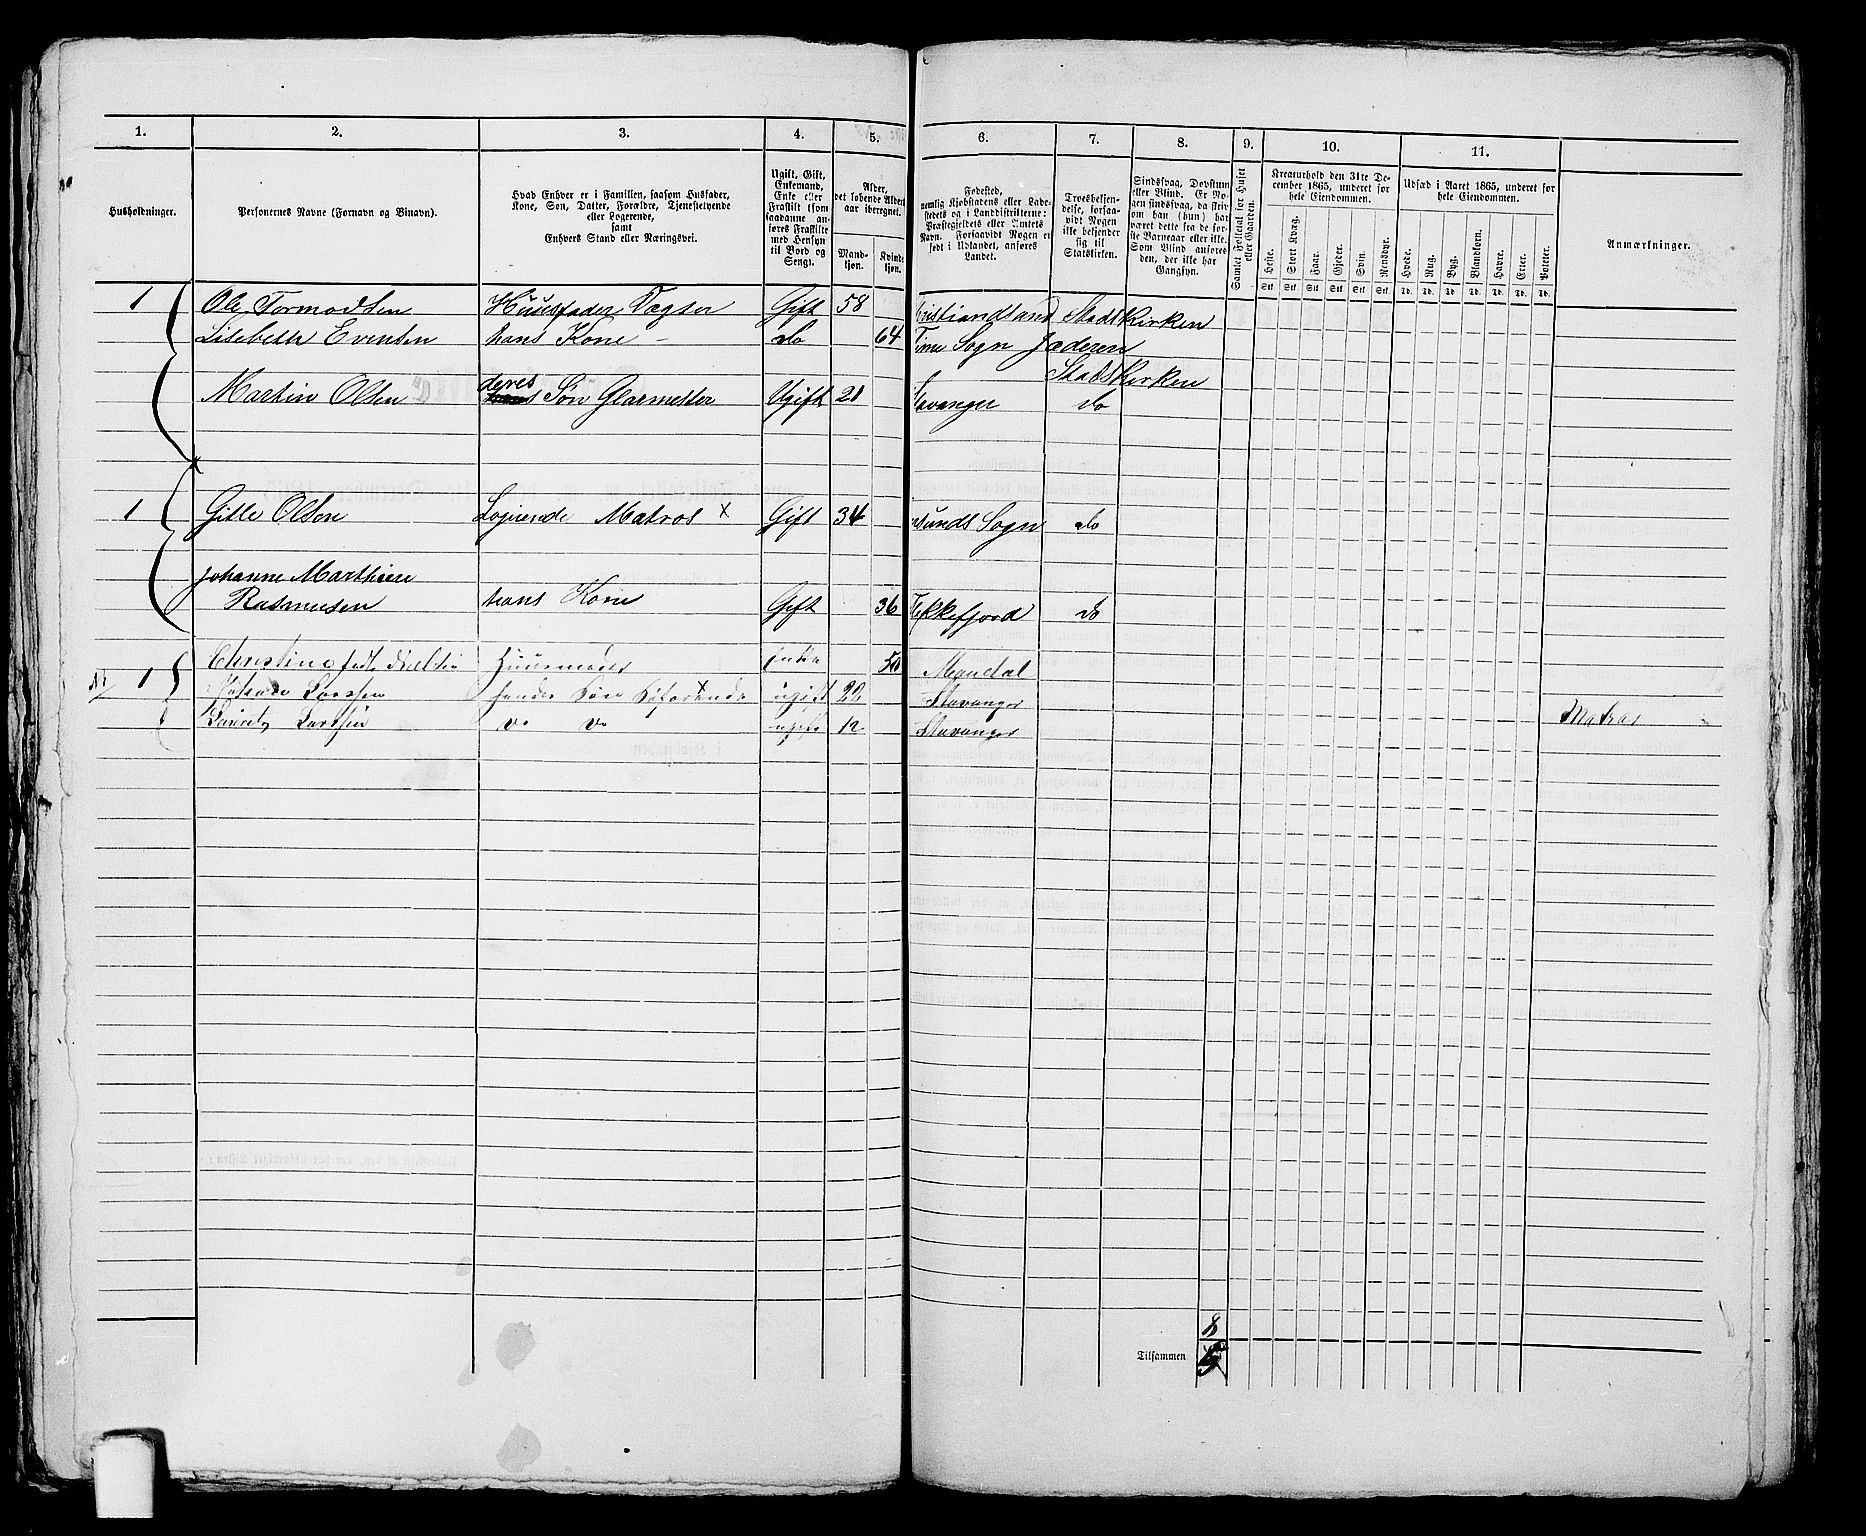 1. 2. 3. 4. 5. 6. 7. 8. 9. 10. 11.
Husholdninger.
Personernes Navne (Fornavn og Binavn).
Hvad Enhver er i Familien, saasom Husfader,
Kone, Søn, Datter, Forældre, Tjenestetyende
eller Logerende,
samt
Enhvers Stand eller Næringsvei.
Ugift, Gift,
Enkemand,
Enke eller
Fraskilt (som
saadanne an-
føres Fraskilte
med Hensyn
til Bord og
Seng).
Alder,
det løbende Alders-
aar iberegnet.
Mand-
kjøn.
Kvinde-
kjøn.
Fødested,
nemlig Kjøbstadens eller Lade-
stedets og i Landdistrikterne:
Præstegjeldets eller Amtets
Navn. Forsaavidt Nogen er
født i Udlandet, anføres
Landet.
Troesbekjen-
delse, forsaa-
vidt Nogen
ikke bekjender
sig til
Statskirken.
Sindssvag, Døvstum
eller Blind. Er No-
gen sindssvag, da skriv
om han (hun) har
været dette fra de før-
ste Barneaar eller ikke.
Som Blind anføres
den, der ikke har
Gangsyn.
Samlet Folketal for Huset
eller Gaarden.
Kreaturhold den 31te De-
cember 1865, underet for
hele Eiendommen.
Heste. Stort Kvæg. Faar. Gjeder. Svin. Rensdyr.
Udsæd i Aaret 1865, underet for
hele Eiendommen.
Hvede. Rug. Byg. Blandkorn. Havre. Erter. Poteter.
Anmærkninger.
Stk. Stk. Stk. Stk. Stk. Stk. Td. Td. Td. Td. Td. Td. Td.
1 Ole Tormodsen Huusfader Vægter Gift 58 ristiandsand Statskirken
Lisebeth Evensen hans Kone - do 64 Time Sogn Jæderen
Statskirken
deres
Martin Olsen Søn Glarmester Ugift 21 avanger do
1 Gitle Olsen Logirende Matros x Gift 34 sunds Sogn do
Johanne Marthine
Rasmusen hans Kone Gift 36 Flekkefjord do
1 Christine født Huusmoder Enke 50 Mandal
Larssen hendes Søn Søfarende x ugift 22 Stavanger Matros
Lauritz Larssen do do ugift 12 Stavanger
8
Tilsammen